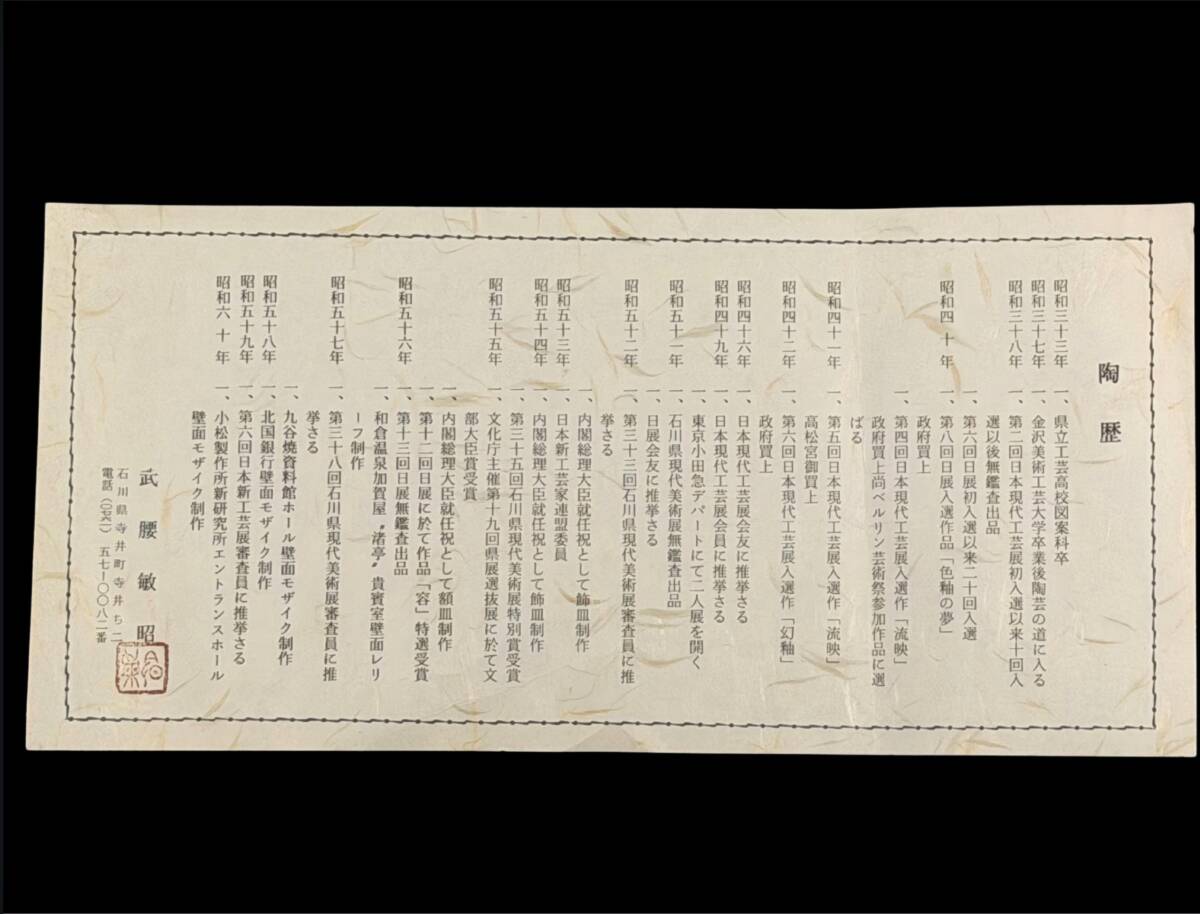 陶歴
昭和三十三年 一、県立工芸高校図案科卒
昭和三十七年 一、金沢美術工芸大学卒業後陶芸の道に入る
昭和三十八年 一、第二回日本現代工芸展初入選以来十回入
選以後無鑑査出品
一、第六回日展初入選以来二十回入選
昭和四十年 一、第八回日展入選作品「色釉の夢」
政府買上
一、第四回日本現代工芸展入選作「流映」
政府買上尚ベルリン芸術祭参加作品に選
ばる
昭和四十一年 一、第五回日本現代工芸展入選作「流映」
高松宮御買上
昭和四十二年 一、第六回日本現代工芸展入選作「幻釉」
政府買上
昭和四十六年 一、日本現代工芸展会友に推挙さる
昭和四十九年 一、日本現代工芸展会員に推挙さる
一、東京小田急デパートにて二人展を開く
昭和五十一年 一、石川県現代美術展無鑑査出品
一、日展会友に推挙さる
昭和五十二年 一、第三十三回石川県現代美術展審査員に推
挙さる
一、内閣総理大臣就任祝として飾皿制作
昭和五十三年 一、日本新工芸家連盟委員
昭和五十四年 一、内閣総理大臣就任祝として飾皿制作
一、第三十五回石川県現代美術展特別賞受賞
昭和五十五年 一、文化庁主催第十九回県展選抜展に於て文
部大臣賞受賞
一、内閣総理大臣就任祝として額皿制作
一、第十二回日展に於て作品「容」特選受賞
昭和五十六年 一、第十三回日展無鑑査出品
一、和倉温泉加賀屋〝渚亭〟貴賓室壁面レリ
ーフ制作
昭和五十七年 一、第三十八回石川県現代美術展審査員に推
挙さる
一、九谷焼資料館ホール壁面モザイク制作
昭和五十八年 一、北国銀行壁面モザイク制作
昭和五十九年 一、第六回日本新工芸展審査員に推挙さる
昭和六十年 一、小松製作所新研究所エントランスホール
壁面モザイク制作
武腰敏昭
石川県寺井町寺井ち二
電話(〇七六一)五七-〇〇八二番